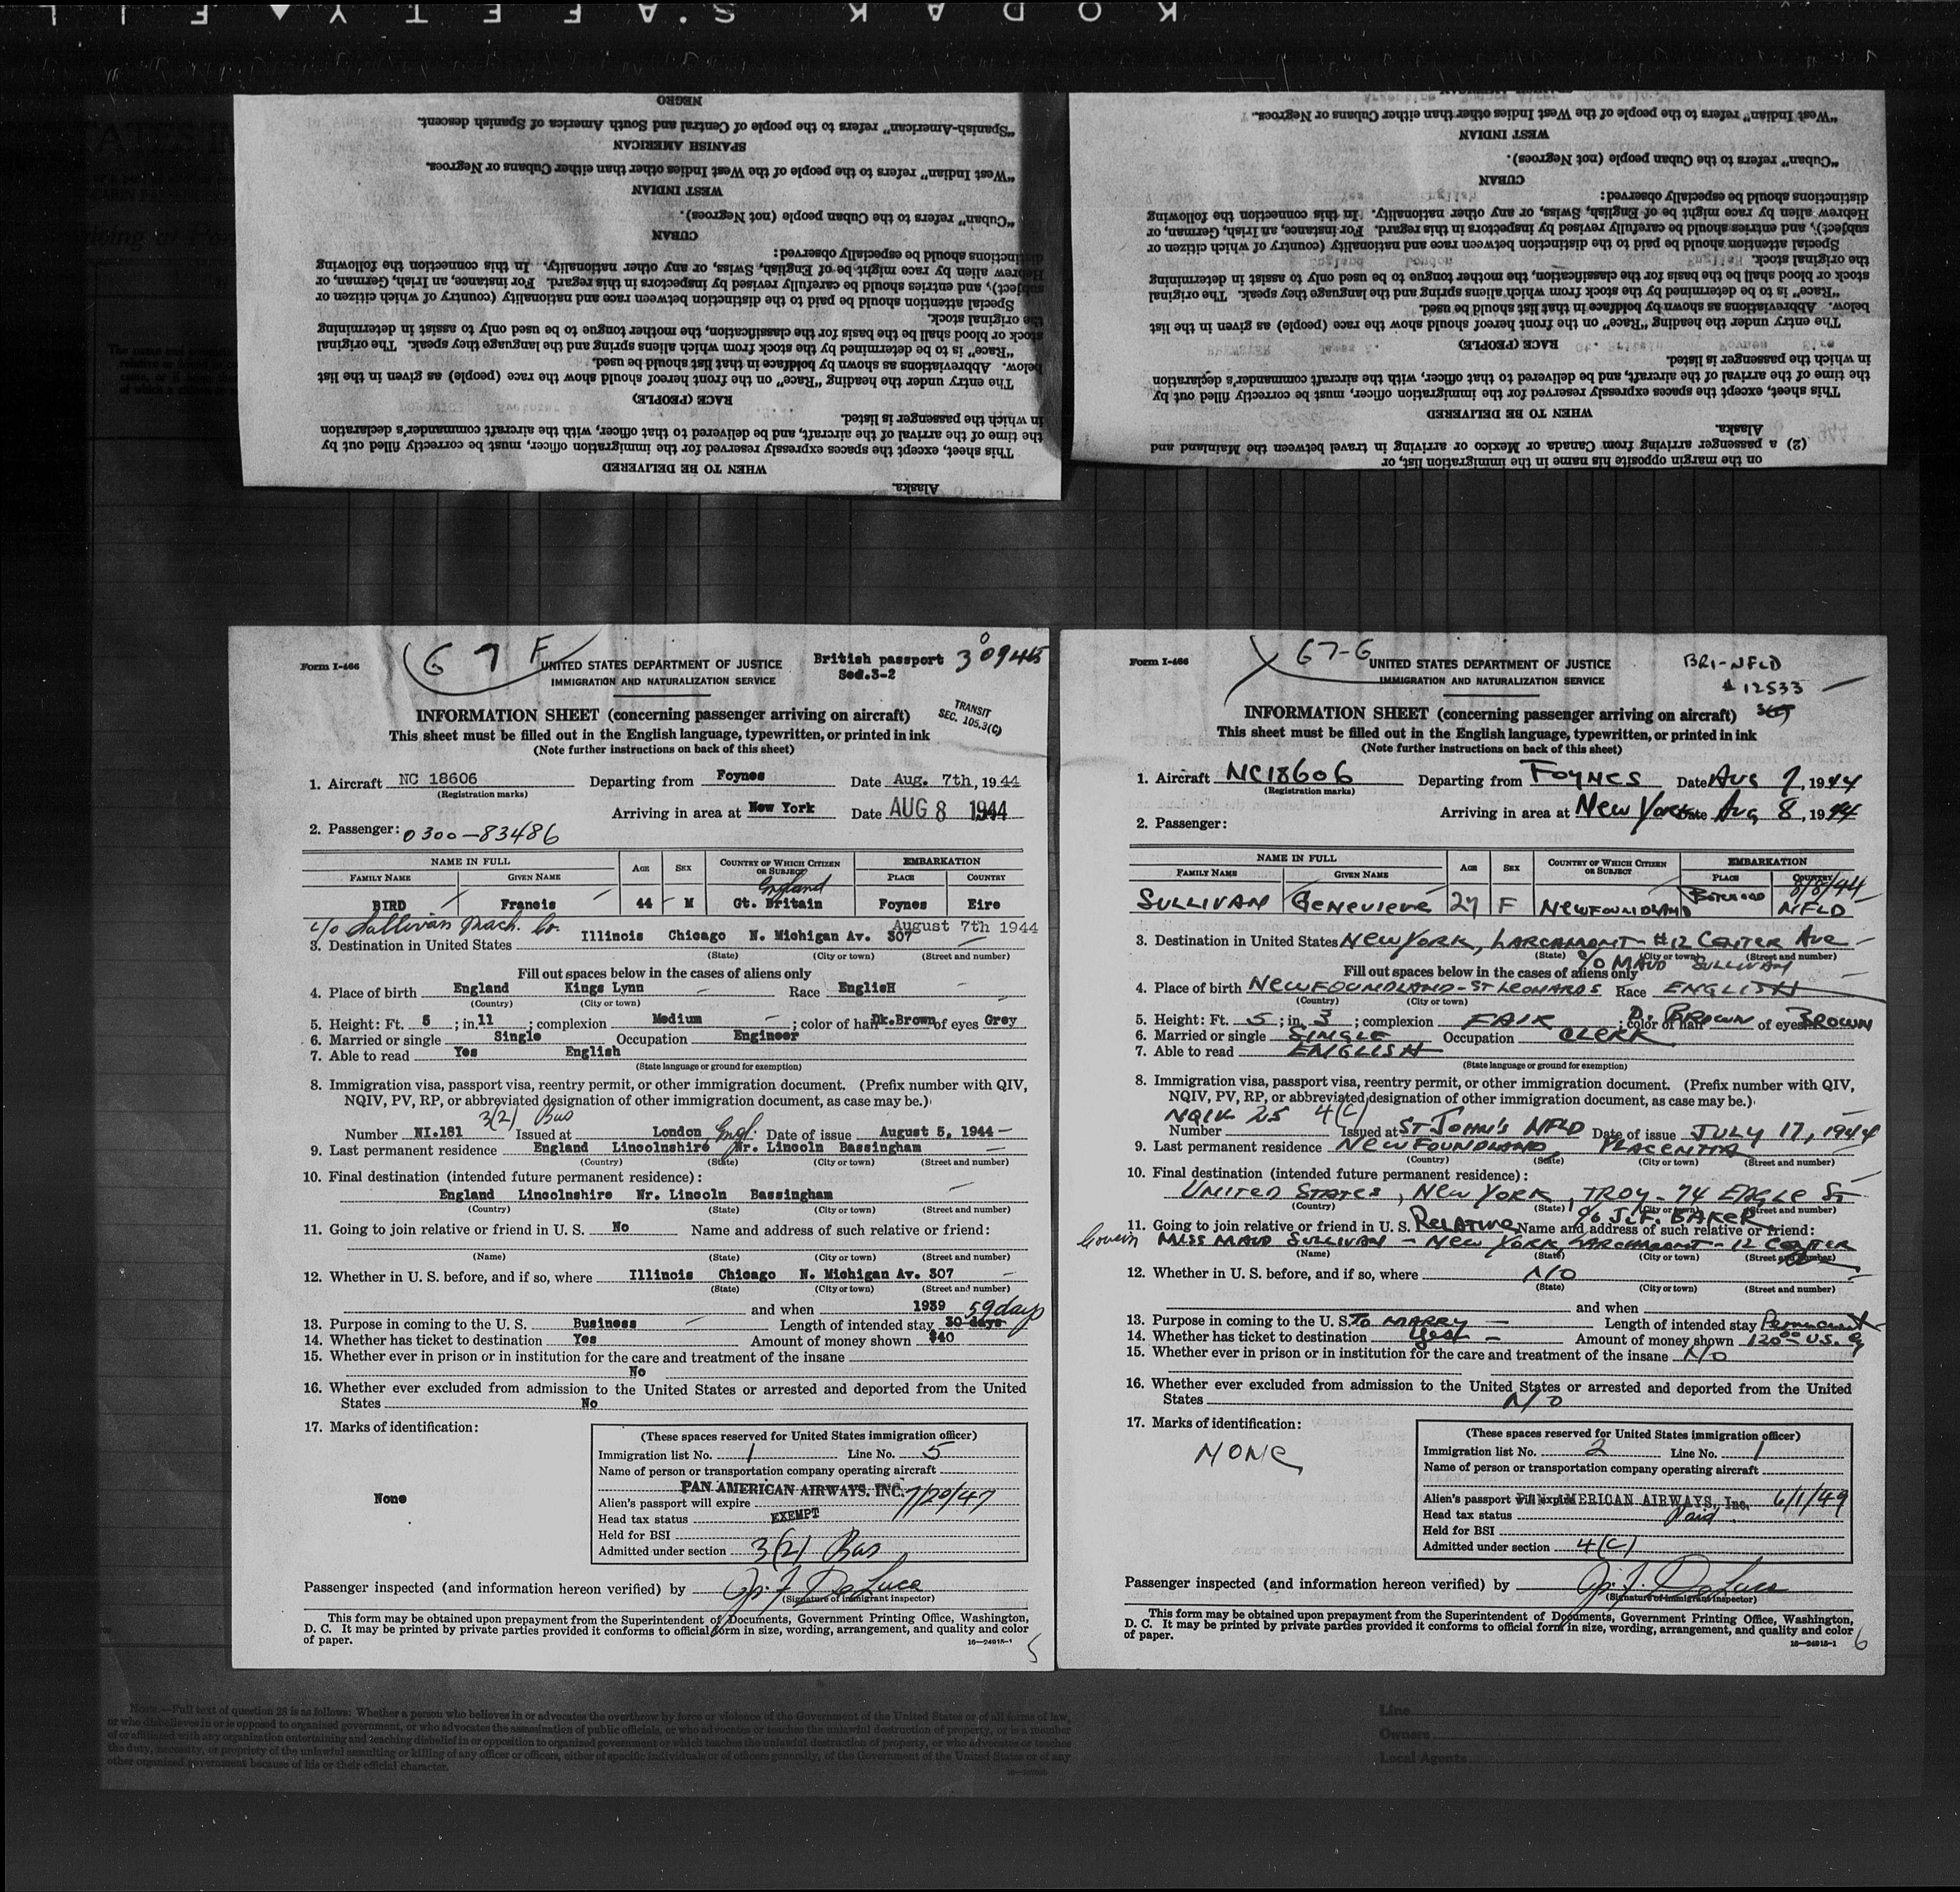 KODAK S'AFETY ▲ FIL
NEGRO
"Spanish-American" refers to the people of Central and South America of Spanish descent.
SPANISH AMERICAN
"West Indian" refers to the people of the West Indies other than either Cubans or Negroes.
WEST INDIAN
"Cuban" refers to the Cuban people (not Negroes).
CUBAN
distinctions should be especially observed:
Hebrew alien by race might be of English, Swiss, or any other nationality. In this connection the following
subject), and entries should be carefully revised by inspectors in this regard. For instance, an Irish, German, or
Special attention should be paid to the distinction between race and nationality (country of which citizen or
the original stock.
stock or blood shall be the basis for the classification, the mother tongue to be used only to assist in determining
"Race" is to be determined by the stock from which aliens spring and the language they speak. The original
below. Abbreviations as shown by boldface in that list should be used.
The entry under the heading "Race" on the front hereof should show the race (people) as given in the list
RACE (PEOPLE)
in which the passenger is listed.
the time of the arrival of the aircraft, and be delivered to that officer, with the aircraft commander's declaration
This sheet, except the spaces expressly reserved for the immigration officer, must be correctly filled out by
WHEN TO BE DELIVERED
Alaska.
"West Indian" refers to the people of the West Indies other than either Cubans or Negroes.
WEST INDIAN
"Cuban" refers to the Cuban people (not Negroes).
CUBAN
distinctions should be especially observed:
Hebrew alien by race might be of English, Swiss, or any other nationality. In this connection the following
subject), and entries should be carefully revised by inspectors in this regard. For instance, an Irish, German, or
Special attention should be paid to the distinction between race and nationality (country of which citizen or
the original stock.
stock or blood shall be the basis for the classification, the mother tongue to be used only to assist in determining
"Race" is to be determined by the stock from which aliens spring and the language they speak. The original
below. Abbreviations as shown by boldface in that list should be used.
The entry under the heading "Race" on the front hereof should show the race (people) as given in the list
RACE (PEOPLE)
in which the passenger is listed.
the time of the arrival of the aircraft, and be delivered to that officer, with the aircraft commander's declaration
This sheet, except the spaces expressly reserved for the immigration officer, must be correctly filled out by
WHEN TO BE DELIVERED
Alaska.
(2) a passenger arriving from Canada or Mexico or arriving in travel between the Mainland and
on the margin opposite his name in the immigration list, or
Form I-466 G 7 F UNITED STATES DEPARTMENT OF JUSTICE British passport 309445
IMMIGRATION AND NATURALIZATION SERVICE Sed.3-2
TRANSIT SEC. 105.3(C)
INFORMATION SHEET (concerning passenger arriving on aircraft)
This sheet must be filled out in the English language, typewritten, or printed in ink
(Note further instructions on back of this sheet)
1. Aircraft NC 18606 Departing from Foynes Date Aug. 7th, 1944
(Registration marks)
Arriving in area at New York Date AUG 8 1944
2. Passenger: 0300-83486
NAME IN FULL AGE SEX COUNTRY OF WHICH CITIZEN OR SUBJECT EMBARKATION
FAMILY NAME GIVEN NAME PLACE COUNTRY
England
BIRD Francis 44 M Gt. Britain Foynes Eire
c/o Sullivan Mach. Co. August 7th 1944
3. Destination in United States Illinois Chicago N. Michigan Av. 307
(State) (City or town) (Street and number)
Fill out spaces below in the cases of aliens only
4. Place of birth England Kings Lynn Race EnglisH
(Country) (City or town)
5. Height: Ft. 5 ; in. 11 ; complexion Medium ; color of hair Dk.Brown of eyes Grey
6. Married or single Single Occupation Engineer
7. Able to read Yes English
(State language or ground for exemption)
8. Immigration visa, passport visa, reentry permit, or other immigration document. (Prefix number with QIV,
NQIV, PV, RP, or abbreviated designation of other immigration document, as case may be.)
3(2) Bus
Number NI.181 Issued at London Engl. Date of issue August 5, 1944
9. Last permanent residence England Lincolnshire Nr. Lincoln Bassingham
(Country) (State) (City or town) (Street and number)
10. Final destination (intended future permanent residence):
England Lincolnshire Nr. Lincoln Bassingham
(Country) (State) (City or town) (Street and number)
11. Going to join relative or friend in U. S. No Name and address of such relative or friend:
(Name) (State) (City or town) (Street and number)
12. Whether in U. S. before, and if so, where Illinois Chicago N. Michigan Av. 307
(State) (City or town) (Street and number)
and when 1939 59 days
13. Purpose in coming to the U. S. Business Length of intended stay 30 days
14. Whether has ticket to destination Yes Amount of money shown $40
15. Whether ever in prison or in institution for the care and treatment of the insane
No
16. Whether ever excluded from admission to the United States or arrested and deported from the United
States No
17. Marks of identification:
None
(These spaces reserved for United States immigration officer)
Immigration list No. 1 Line No. 5
Name of person or transportation company operating aircraft
PAN AMERICAN AIRWAYS, INC.
Alien's passport will expire 7/20/47
Head tax status EXEMPT
Held for BSI
Admitted under section 3(2) Bus
Passenger inspected (and information hereon verified) by Jos. F. DeLuca
(Signature of immigrant inspector)
This form may be obtained upon prepayment from the Superintendent of Documents, Government Printing Office, Washington,
D. C. It may be printed by private parties provided it conforms to official form in size, wording, arrangement, and quality and color
of paper. 16—24915-1
5
Form I-466 67-G UNITED STATES DEPARTMENT OF JUSTICE BRI-NFLD
IMMIGRATION AND NATURALIZATION SERVICE # 12533
INFORMATION SHEET (concerning passenger arriving on aircraft)
This sheet must be filled out in the English language, typewritten, or printed in ink
(Note further instructions on back of this sheet)
1. Aircraft NC18606 Departing from FOYNES Date Aug 7, 1944
(Registration marks)
Arriving in area at New York Date Aug 8, 1944
2. Passenger:
NAME IN FULL AGE SEX COUNTRY OF WHICH CITIZEN OR SUBJECT EMBARKATION
FAMILY NAME GIVEN NAME PLACE COUNTRY
8/8/44
SULLIVAN GENEVIEVE 27 F NEWFOUNDLAND BOTWOOD NFLD
3. Destination in United States NEW YORK, LARCHMONT - #12 CENTER AVE
(State) (City or town) (Street and number)
c/o MAUD SULLIVAN
Fill out spaces below in the cases of aliens only
4. Place of birth NEWFOUNDLAND - ST LEONARDS Race ENGLISH
(Country) (City or town)
5. Height: Ft. 5 ; in. 3 ; complexion FAIR ; color of hair D. BROWN of eyes BROWN
6. Married or single SINGLE Occupation CLERK
7. Able to read ENGLISH
(State language or ground for exemption)
8. Immigration visa, passport visa, reentry permit, or other immigration document. (Prefix number with QIV,
NQIV, PV, RP, or abbreviated designation of other immigration document, as case may be.)
NQIV 25 4(C)
Number Issued at ST JOHN'S NFLD Date of issue JULY 17, 1944
9. Last permanent residence NEWFOUNDLAND, PLACENTIA
(Country) (State) (City or town) (Street and number)
10. Final destination (intended future permanent residence):
UNITED STATES, NEW YORK, TROY - 74 EAGLE ST
(Country) (State) (City or town) (Street and number)
c/o J.F. BAKER
11. Going to join relative or friend in U. S. RELATIVE Name and address of such relative or friend:
MISS MAUD SULLIVAN - NEW YORK, LARCHMONT - 12 CENTER
(Name) (State) (City or town) (Street and number)
12. Whether in U. S. before, and if so, where NO
(State) (City or town) (Street and number)
and when
13. Purpose in coming to the U. S. TO MARRY Length of intended stay Permanent
14. Whether has ticket to destination Yes Amount of money shown 120.00 U.S.
15. Whether ever in prison or in institution for the care and treatment of the insane NO
16. Whether ever excluded from admission to the United States or arrested and deported from the United
States NO
17. Marks of identification:
NONE
(These spaces reserved for United States immigration officer)
Immigration list No. 2 Line No. 1
Name of person or transportation company operating aircraft
Alien's passport will expire PAN AMERICAN AIRWAYS, Inc. 6/1/49
Head tax status Paid
Held for BSI
Admitted under section 4(C)
Passenger inspected (and information hereon verified) by Jos. F. DeLuca
(Signature of immigrant inspector)
This form may be obtained upon prepayment from the Superintendent of Documents, Government Printing Office, Washington,
D. C. It may be printed by private parties provided it conforms to official form in size, wording, arrangement, and quality and color
of paper. 16—24915-1
6
NOTE.—Full text of question 28 is as follows: Whether a person who believes in or advocates the overthrow by force or violence of the Government of the United States or of all forms of law,
or who disbelieves in or is opposed to organized government, or who advocates the assassination of public officials, or who advocates or teaches the unlawful destruction of property, or is a member
of or affiliated with any organization entertaining and teaching disbelief in or opposition to organized government or which teaches the unlawful destruction of property, or who advocates or teaches
the duty, necessity, or propriety of the unlawful assaulting or killing of any officer or officers, either of specific individuals or of officers generally, of the Government of the United States or of any
other organized government because of his or their official character.
Line
Owners
Local Agents